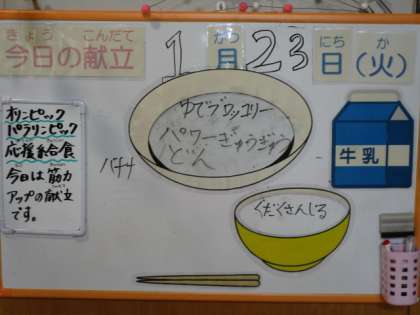 きょう こんだて
今日の献立
1 がつ 23 にち か
月 日(火)
オリンピック
パラリンピック
応援給食
今日は筋力
アップの献立
です。
ゆでブロッコリー
パワーぎゅうぎゅう
どん
バナナ
牛乳
くだくさんじる